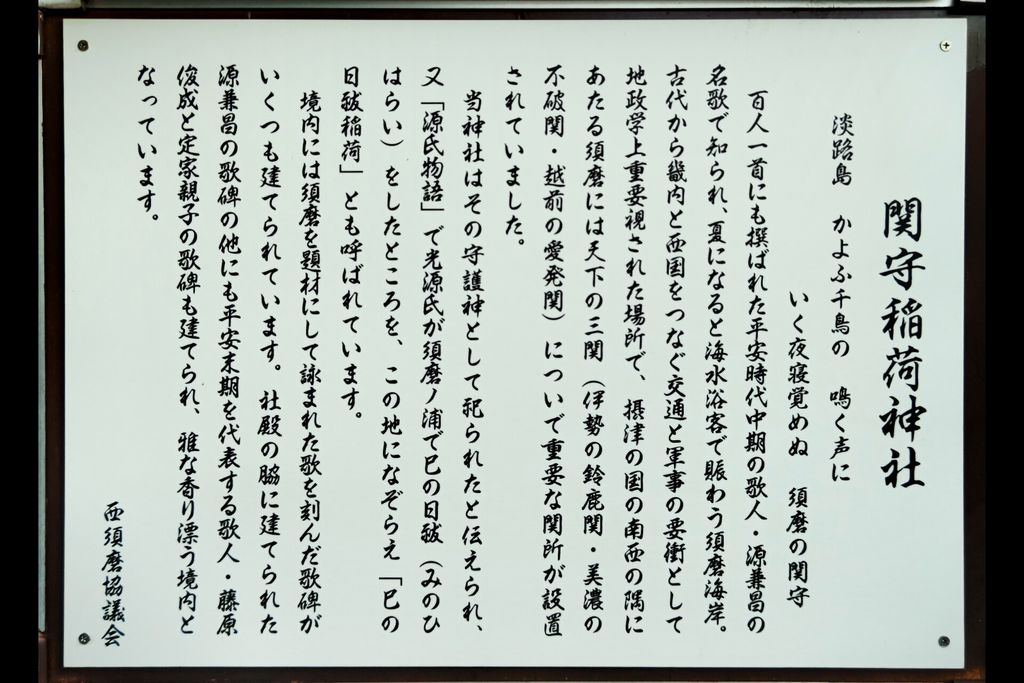 関守稲荷神社
淡路島　かよふ千鳥の　鳴く声に
いく夜寝覚めぬ　須磨の関守
百人一首にも撰ばれた平安時代中期の歌人・源兼昌の
名歌で知られ、夏になると海水浴客で賑わう須磨海岸。
古代から畿内と西国をつなぐ交通と軍事の要衝として
地政学上重要視された場所で、摂津の国の南西の隅に
あたる須磨には天下の三関（伊勢の鈴鹿関・美濃の
不破関・越前の愛発関）についで重要な関所が設置
されていました。
当神社はその守護神として祀られたと伝えられ、
又「源氏物語」で光源氏が須磨ノ浦で巳の日祓（みのひ
はらい）をしたところを、この地になぞらえ「巳の
日祓稲荷」とも呼ばれています。
境内には須磨を題材にして詠まれた歌を刻んだ歌碑が
いくつも建てられています。社殿の脇に建てられた
源兼昌の歌碑の他にも平安末期を代表する歌人・藤原
俊成と定家親子の歌碑も建てられ、雅な香り漂う境内と
なっています。
西須磨協議会